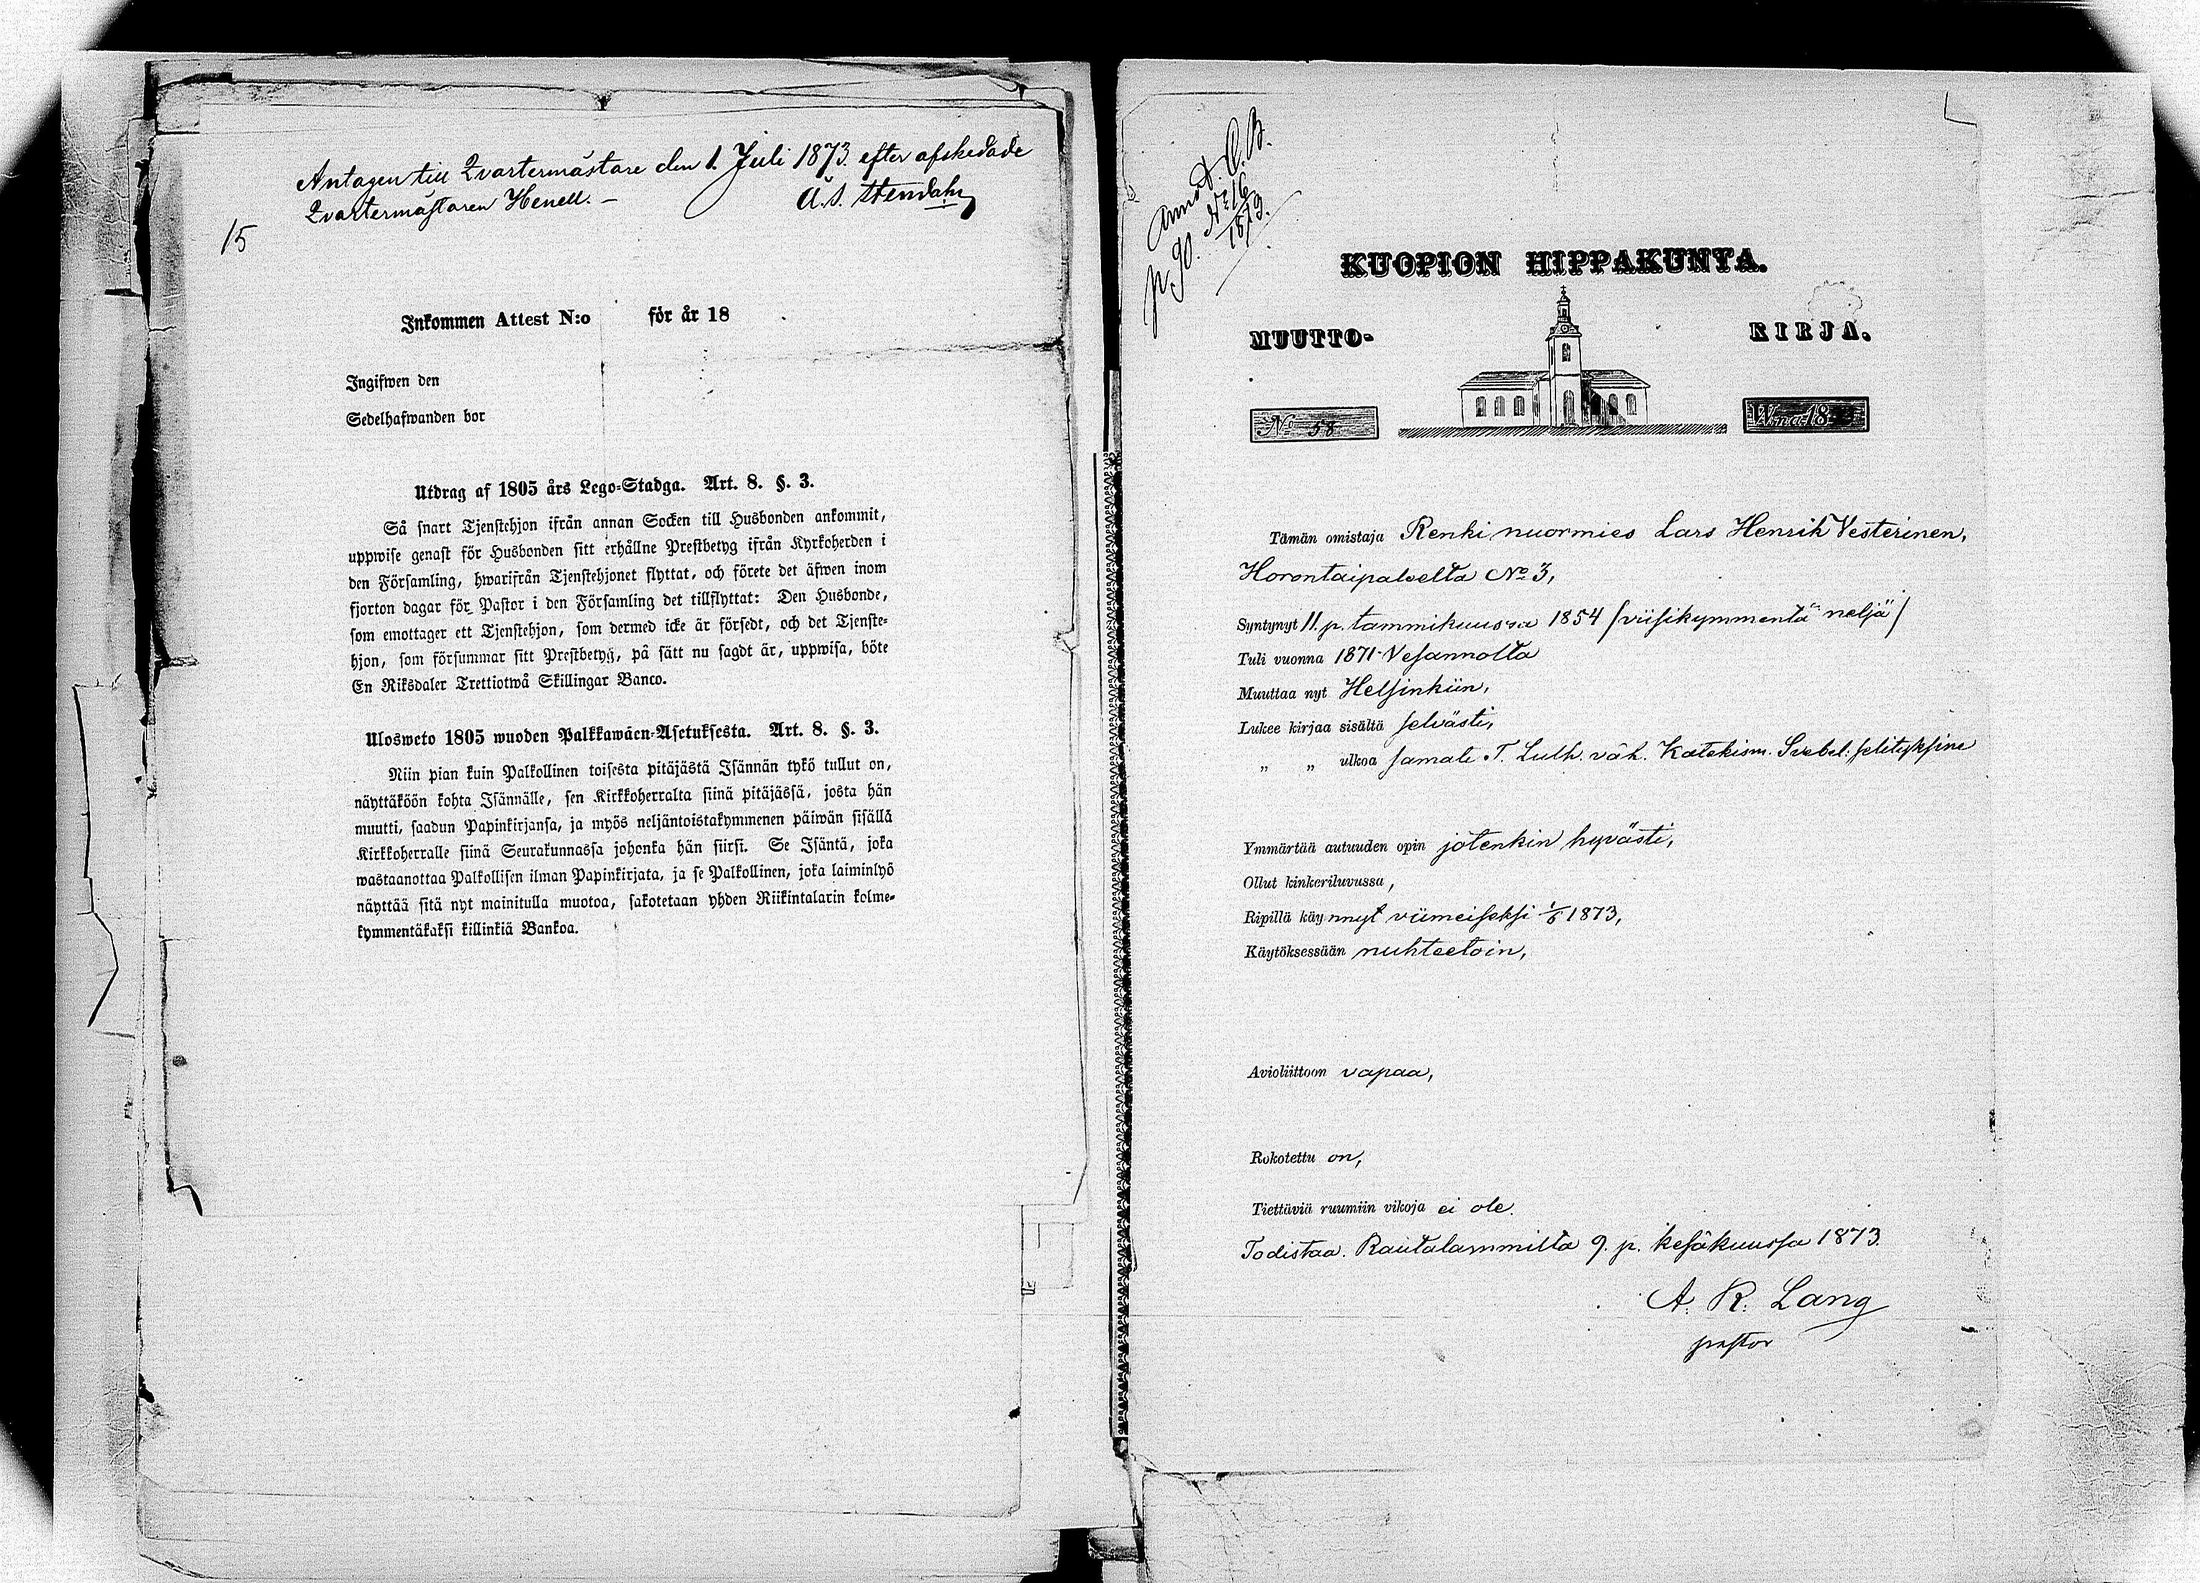 Antagen till Qvartermästare den 1. Juli 1873 efter afskedade
Qvartermästaren Henell. –
A. S. Stendahl
15
Inkommen Attest N:o för år 18
Ingifwen den
Sedelhafwanden bor
Utdrag af 1805 års Lego-Stadga. Art. 8. §. 3.
Så snart Tjenstehjon ifrån annan Socken till Husbonden ankommit,
uppwise genast för Husbonden sitt erhållne Prestbetyg ifrån Kyrkoherden i
den Församling, hwarifrån Tjenstehjonet flyttat, och förete det äfwen inom
fjorton dagar för Pastor i den Församling det tillflyttat: Den Husbonde,
som emottager ett Tjenstehjon, som dermed icke är försedt, och det Tjenste-
hjon, som försummar sitt Prestbetyg, på sätt nu sagdt är, uppwisa, böte
En Riksdaler Trettiotwå Skillingar Banco.
Ulosweto 1805 wuoden Palkkawäen-Asetuksesta. Art. 8. §. 3.
Niin pian kuin Palkollinen toisesta pitäjästä Isännän tykö tullut on,
näyttäköön kohta Isännälle, sen Kirkkoherralta siinä pitäjässä, josta hän
muutti, saadun Papinkirjansa, ja myös neljäntoistakymmenen päiwän sisällä
Kirkkoherralle siinä Seurakunnassa johonka hän siirsi. Se Isäntä, joka
wastaanottaa Palkollisen ilman Papinkirjata, ja se Palkollinen, joka laiminlyö
näyttää sitä nyt mainitulla muotoa, sakotetaan yhden Riikintalarin kolme-
kymmentäkaksi killinkiä Bankoa.
Annot. O. B.
p. 90. No 16
1873.
KUOPION HIPPAKUNTA.
MUUTTO- KIRJA.
No 58 W:na 18
Tämän omistaja Renki nuormies Lars Henrik Vesterinen,
Horontaipaleelta No 3,
Syntynyt 11. p. tammikuussa 1854 /viisikymmentä neljä/
Tuli vuonna 1871 Vesannolta
Muuttaa nyt Helsinkiin,
Lukee kirjaa sisältä selvästi,
„ „ ulkoa samate T. Luth. väh. Katekism. Svebel. selityksine
Ymmärtää autuuden opin jotenkin hyvästi,
Ollut kinkeriluvussa,
Ripillä käynnyt viimeiseksi 1/6 1873,
Käytöksessään nuhteetoin,
Avioliittoon vapaa,
Rokotettu on,
Tiettäviä ruumiin vikoja ei ole.
Todistaa. Rautalammilta 9. p. kesäkuussa 1873.
A. R. Lang
pastor